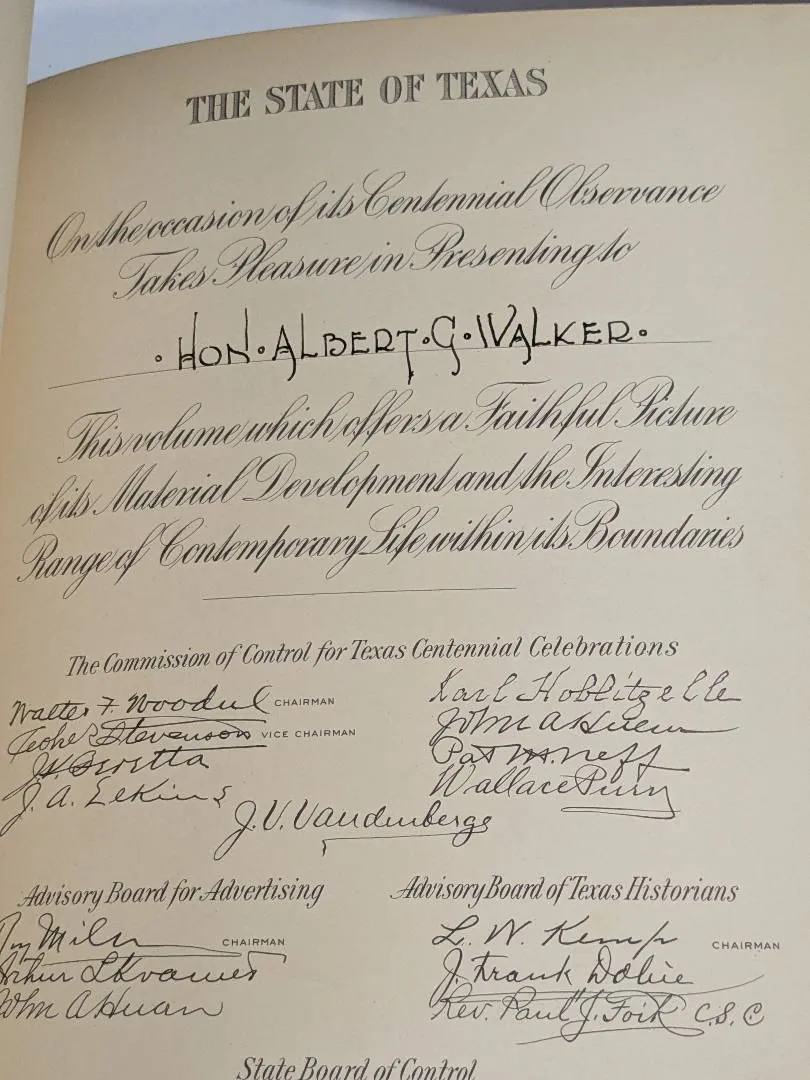 THE STATE OF TEXAS
On the occasion of its Centennial Observance
Takes Pleasure in Presenting to
· HON · ALBERT · G · WALKER ·
This volume which offers a Faithful Picture
of its Material Development and the Interesting
Range of Contemporary Life within its Boundaries
The Commission of Control for Texas Centennial Celebrations
Walter F. Woodul CHAIRMAN
Karl Hoblitzelle
Stevenson VICE CHAIRMAN
John A
J. K. Beretta
Pat M. Neff
J. A. Elkins
Wallace Perry
J. V. Vandenberge
Advisory Board for Advertising
CHAIRMAN
Arthur L
John A
Advisory Board of Texas Historians
L. W. Kemp CHAIRMAN
J. Frank Dobie
Rev. Paul J. Foik C.S.C
State Board of Control